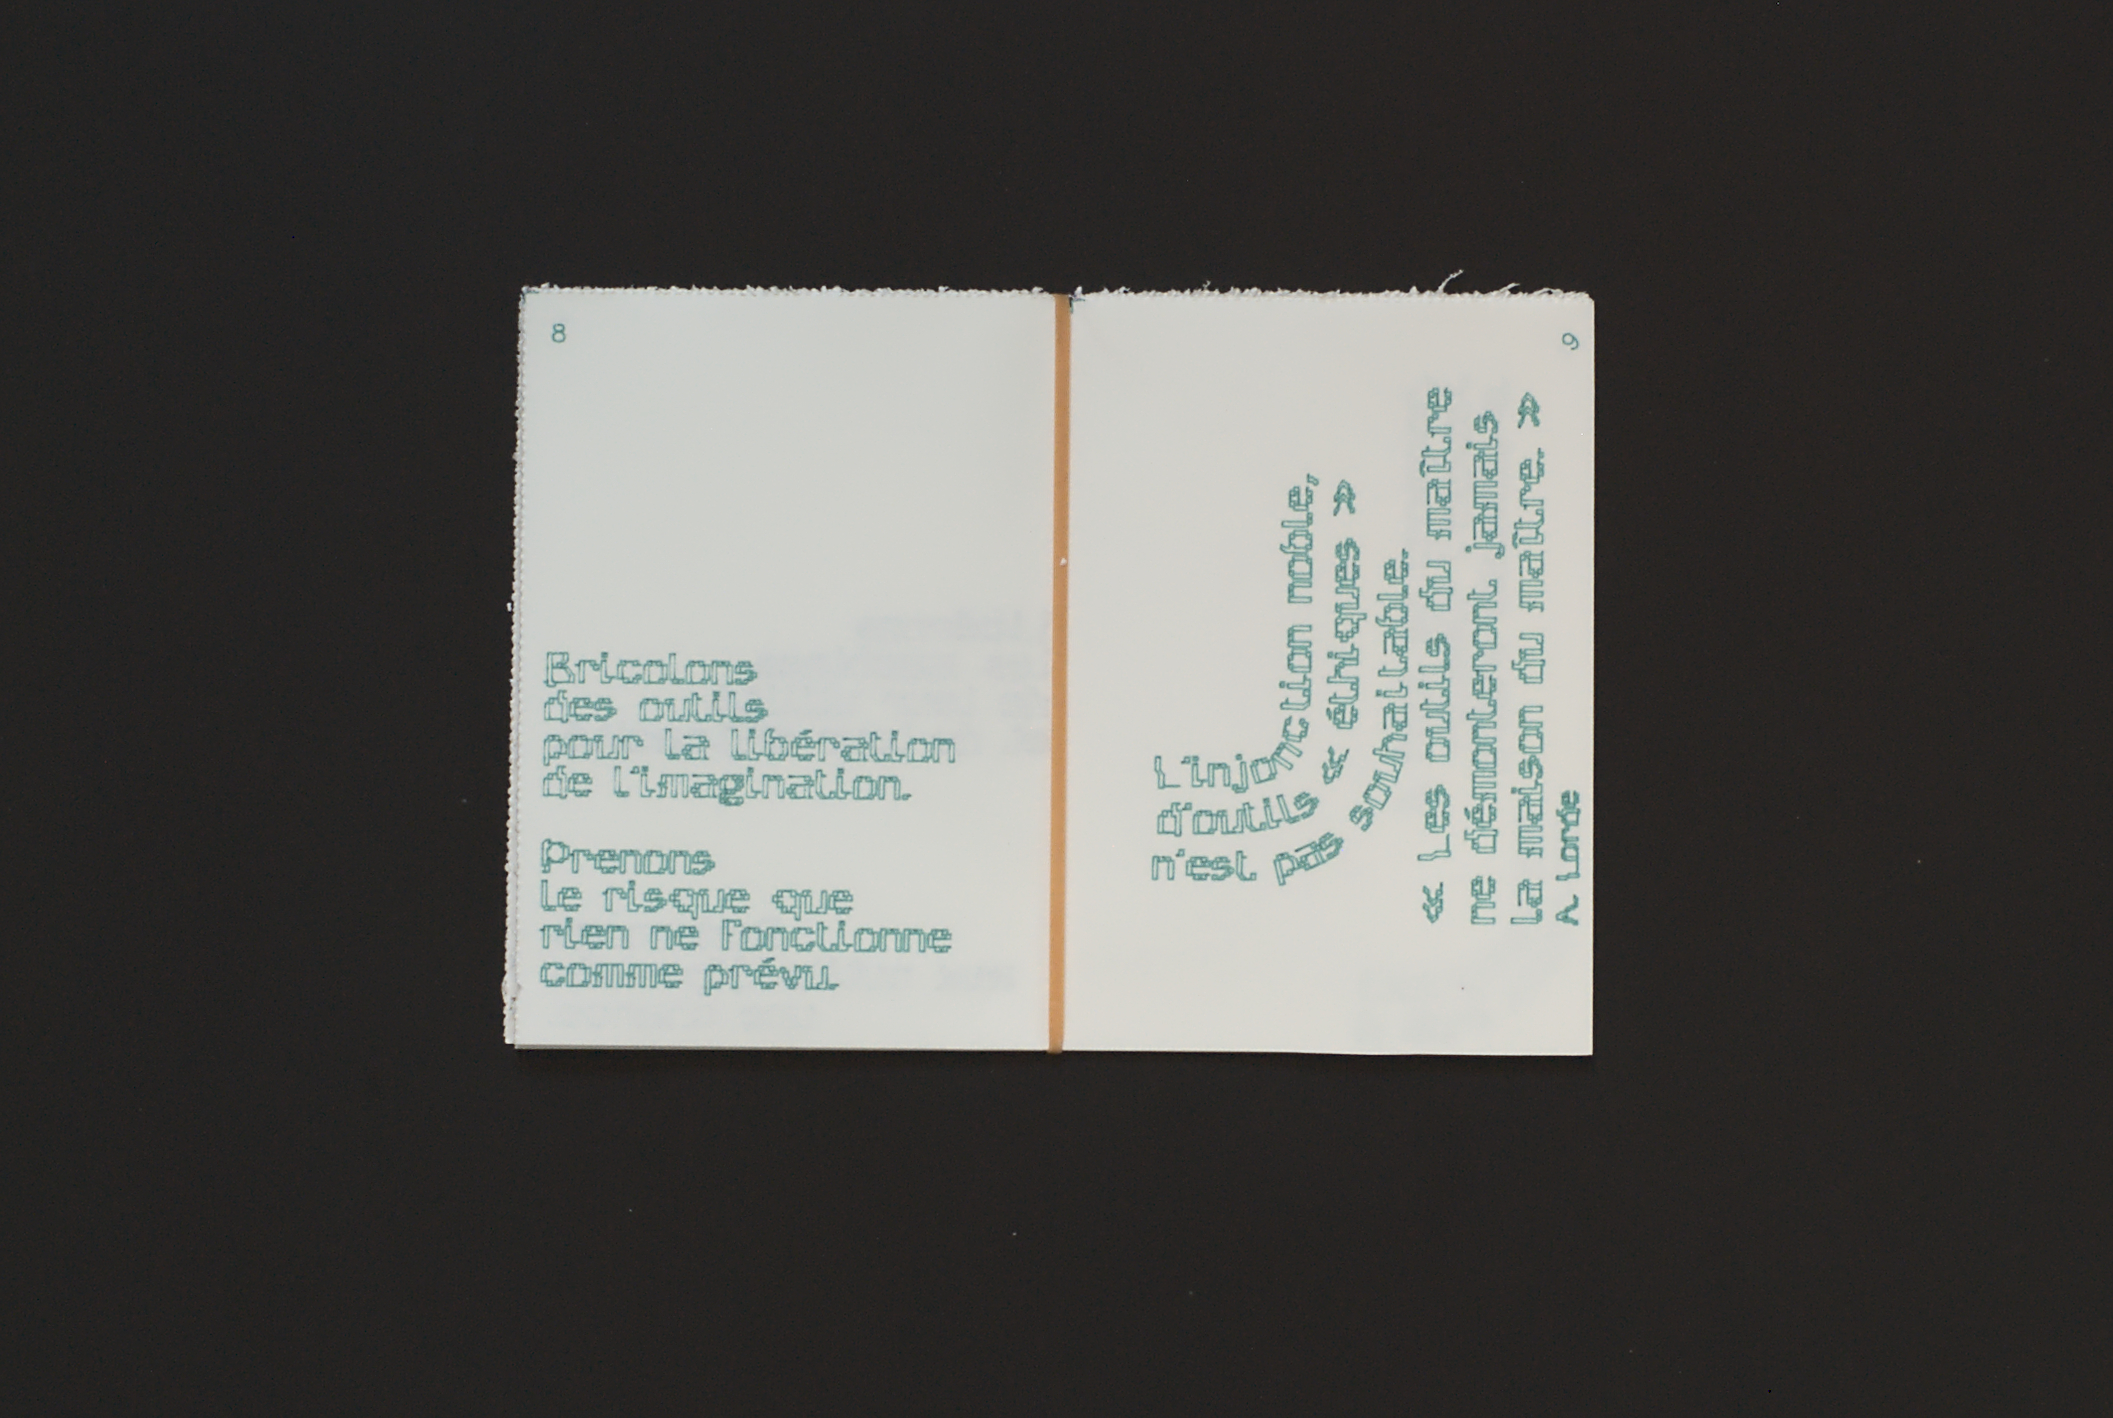 8
Bricolons
des outils
pour la libération
de l'imagination.
Prenons
le risque que
rien ne fonctionne
comme prévu.
9
L'injonction noble,
d'outils « éthiques »
n'est pas souhaitable.
« Les outils du maître
ne démonteront jamais
la maison du maître. »
A. Lorde